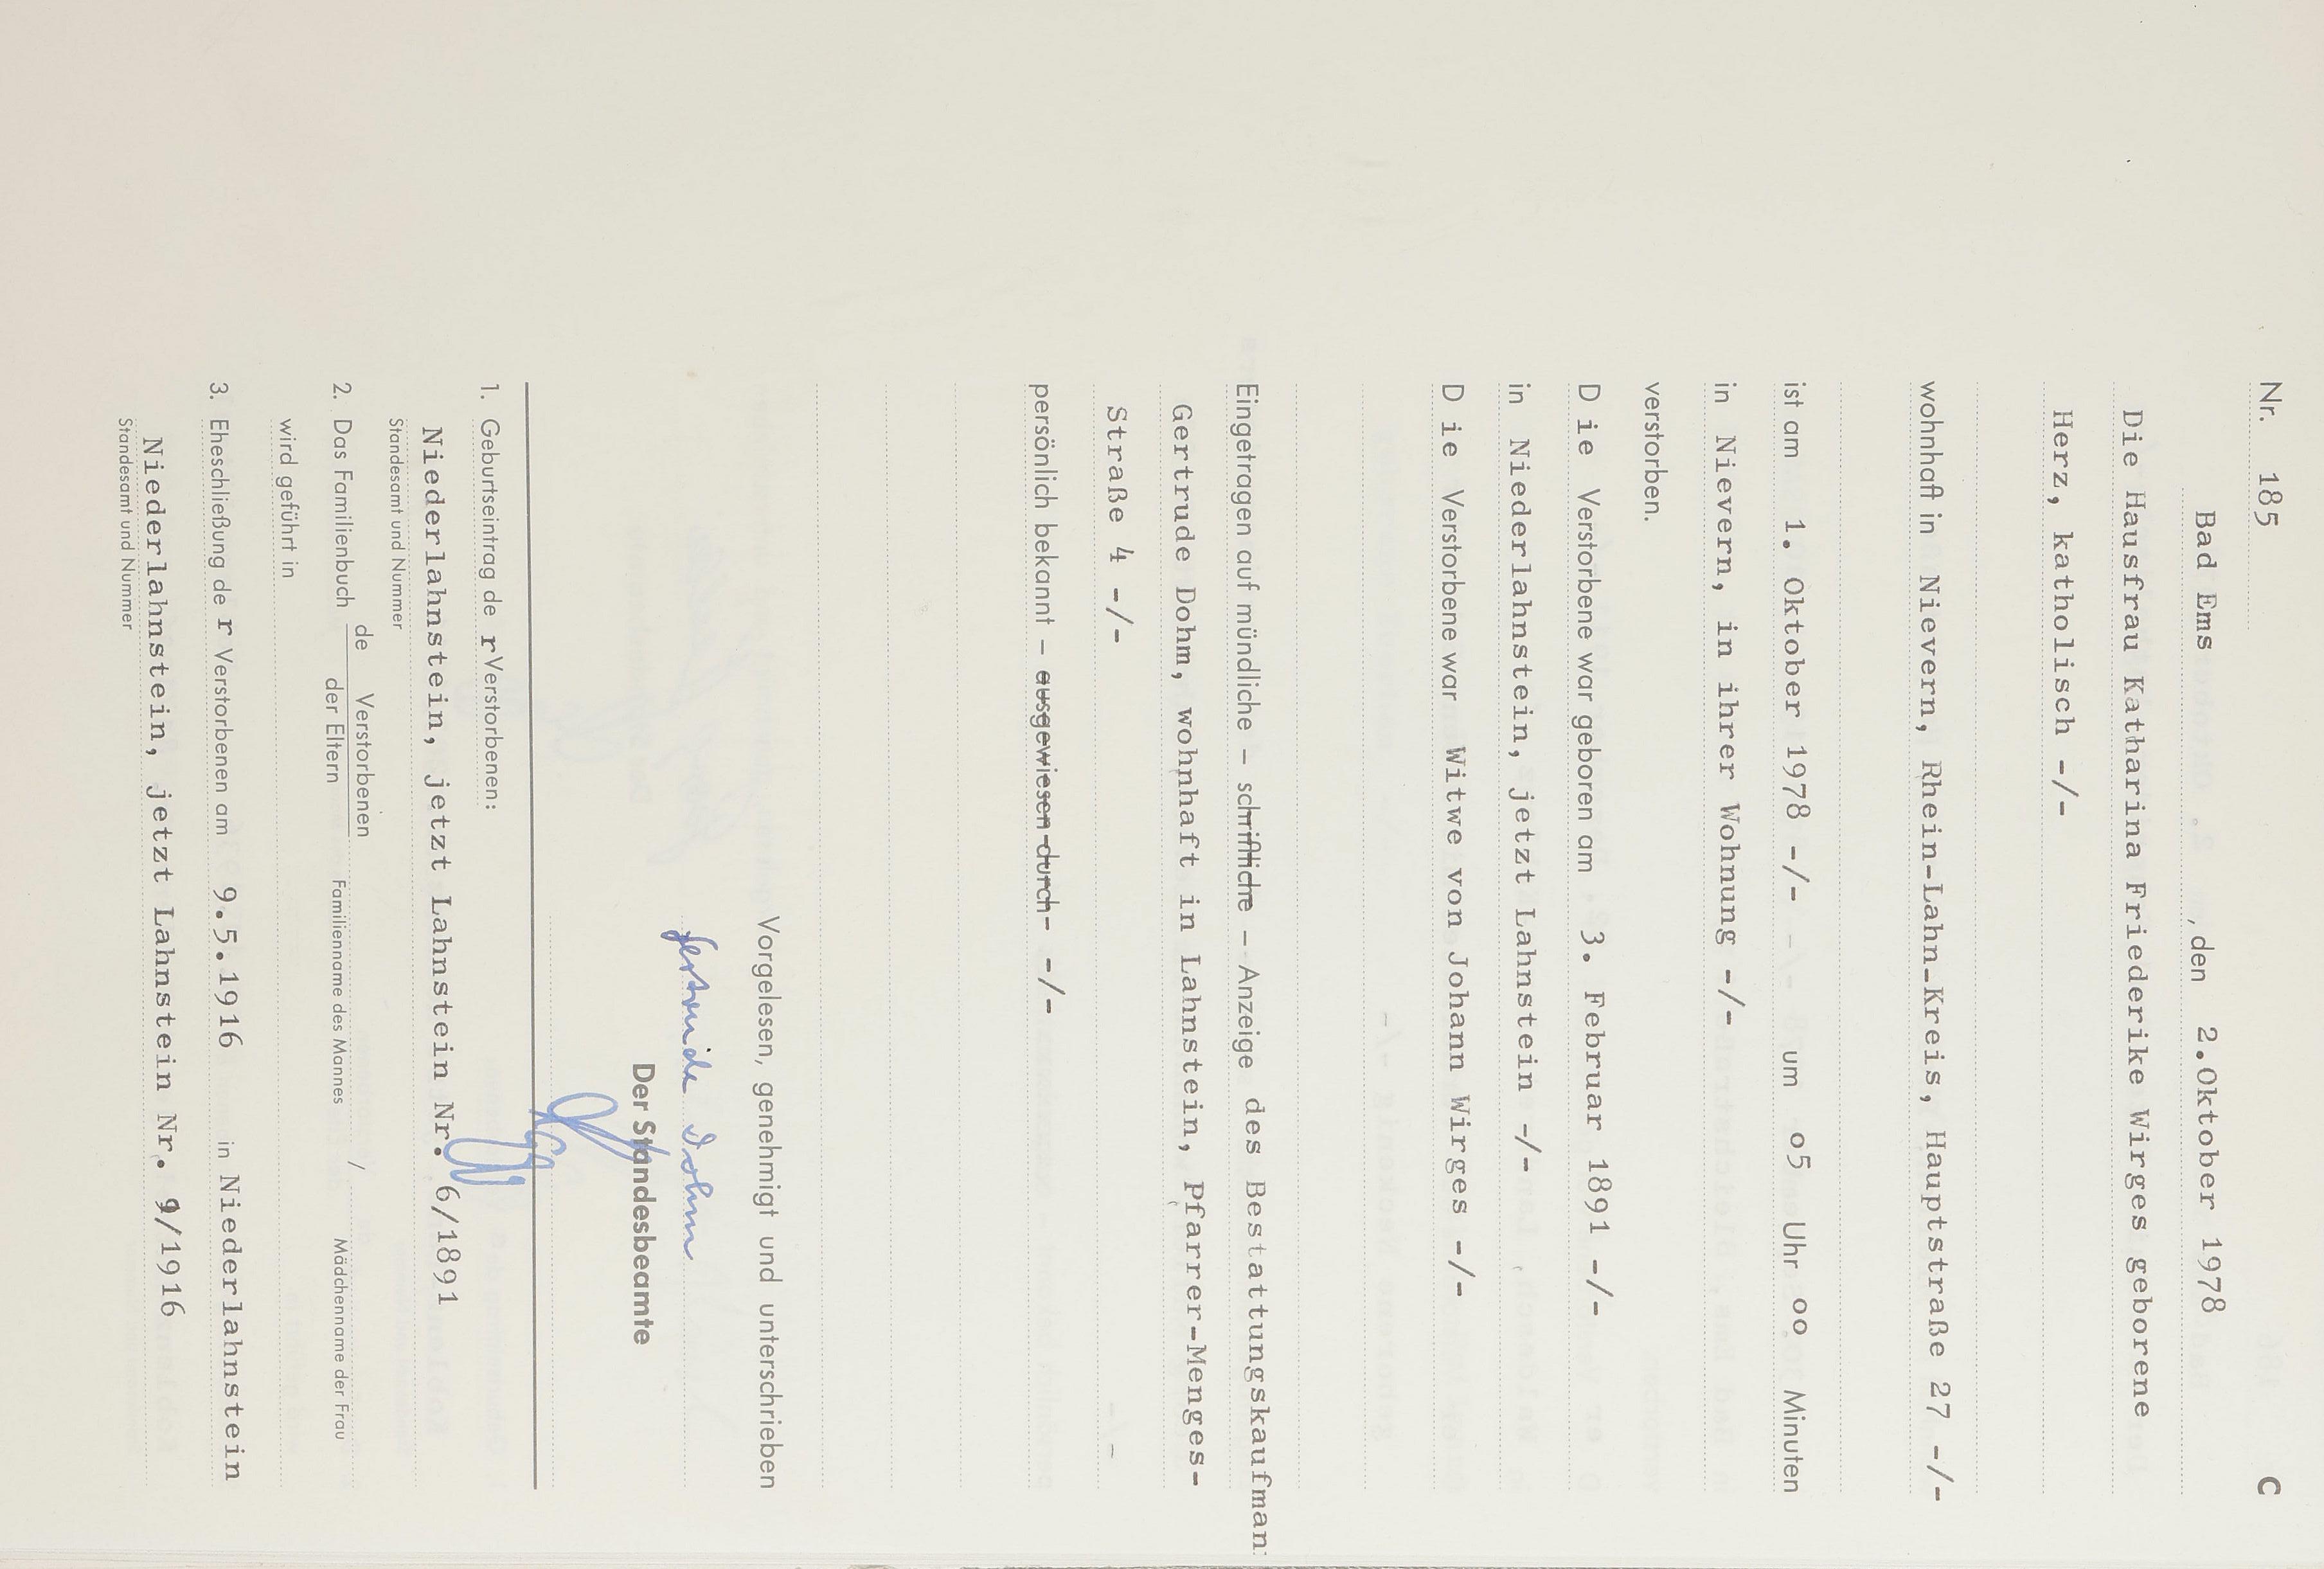 Nr. 185 C
Bad Ems, den 2.Oktober 1978
Die Hausfrau Katharina Friederike Wirges geborene
Herz, katholisch -/-
wohnhaft in Nievern, Rhein-Lahn-Kreis, Hauptstraße 27 -/-
ist am 1. Oktober 1978 -/- um o5 Uhr oo Minuten
in Nievern, in ihrer Wohnung -/-
verstorben.
D ie Verstorbene war geboren am 3. Februar 1891 -/-
in Niederlahnstein, jetzt Lahnstein -/-
D ie Verstorbene war Witwe von Johann Wirges -/-
Eingetragen auf mündliche – schriftliche – Anzeige des Bestattungskaufman
Gertrude Dohm, wohnhaft in Lahnstein, Pfarrer-Menges-
Straße 4 -/-
persönlich bekannt – ausgewiesen durch- -/-
Vorgelesen, genehmigt und unterschrieben
Gertrude Dohm
Der Standesbeamte
1. Geburtseintrag de r Verstorbenen:
Niederlahnstein, jetzt Lahnstein Nr. 6/1891
Standesamt und Nummer
2. Das Familienbuch de Verstorbenen / der Eltern
Familienname des Mannes / Mädchenname der Frau
wird geführt in
3. Eheschließung de r Verstorbenen am 9.5.1916 in Niederlahnstein
Niederlahnstein, jetzt Lahnstein Nr. 9/1916
Standesamt und Nummer